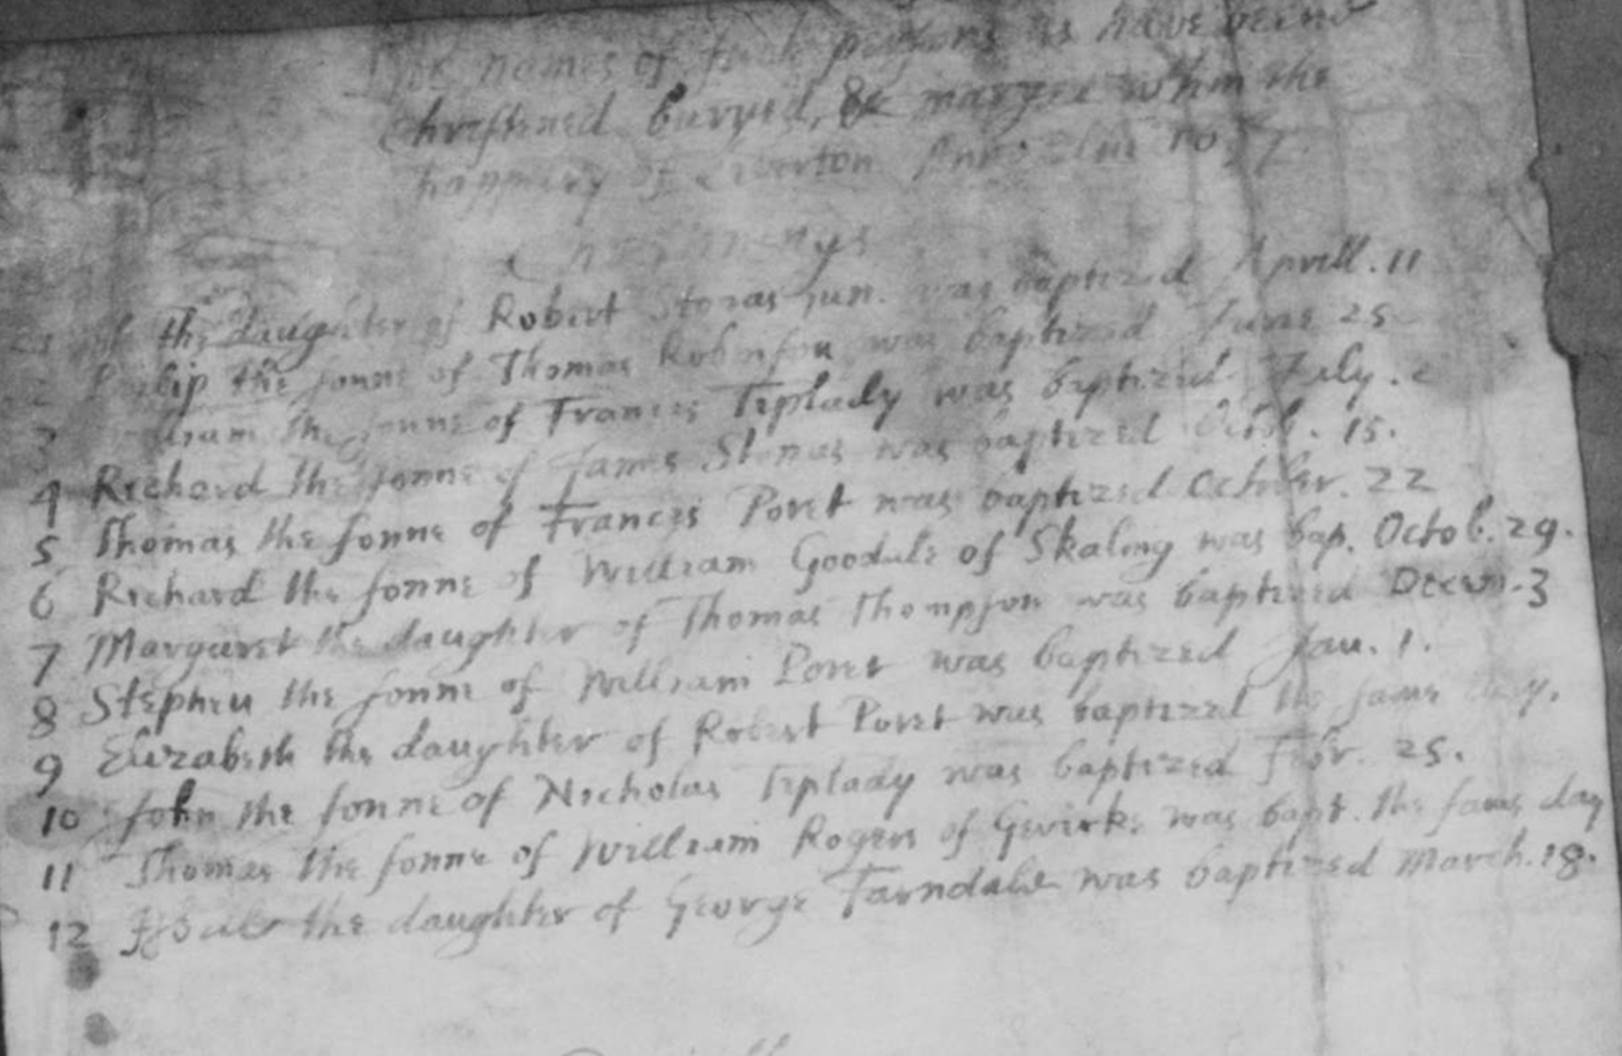 The names of such persons as have beene
Christened buryed, & maryed within the
happinry of Liverton Anno Dni
Christnengs
the daughter of Robert Stonas jun. was baptized Aprill. 11
2 Philip the sonne of Thomas Robinson was baptized June 25
3 the sonne of Francis Tiplady was baptized July. 2
4 Richard the sonne of James Stonas was baptized Octob. 15.
5 Thomas the sonne of Francis Poret was baptized October. 22
6 Richard the sonne of William Goodale of Skaling was bap. Octob. 29.
7 Margaret the daughter of Thomas Thompson was baptized Decem. 3
8 Stephen the sonne of William Poret was baptized Jan. 1.
9 Elizabeth the daughter of Robert Poret was baptized the same day.
10 John the sonne of Nicholas Tiplady was baptized Febr. 25.
11 Thomas the sonne of William Rogers of Gerick was bapt. the same day
12 the daughter of George Farndale was baptized March. 18.